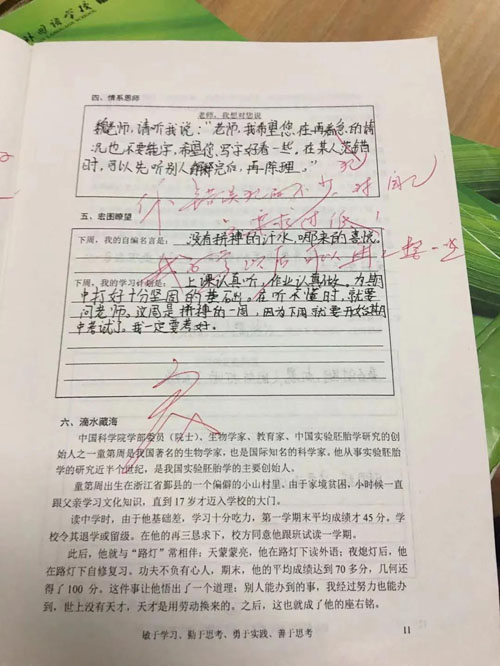 外国语学校
四、情系恩师
老师，我想对您说
魏老师，请听我说：“老师，我希望您，在再着急的情
况也不要拖字，希望您，写字好看一些，在某人犯错
时，可以先听别人解释完后，再陈理。”
你 错误犯的不少 对自己
要求过低！
五、宏图瞭望
下周，我的自编名言是：没有拼搏的汗水，哪来的喜悦。
下周，我的学习计划是：上课认真听，作业认真做。为期
中打好十分坚固的基础。在听不懂时，就要
问老师。这周是拼搏的一周，因为下周就要开始期
中考试了。我一定要考好。
六、滴水藏海
中国科学院学部委员（院士）、生物学家、教育家、中国实验胚胎学研究的创
始人之一童第周是我国著名的生物学家，也是国际知名的科学家。他从事实验胚胎
学的研究近半个世纪，是我国实验胚胎学的主要创始人。
童第周出生在浙江省鄞县的一个偏僻的小山村里。由于家境贫困，小时候一直
跟父亲学习文化知识，直到 17 岁才迈入学校的大门。
读中学时，由于他基础差，学习十分吃力，第一学期末平均成绩才 45 分。学
校令其退学或留级。在他的再三恳求下，校方同意他跟班试读一学期。
此后，他就与“路灯”常相伴：天蒙蒙亮，他在路灯下读外语；夜熄灯后，他
在路灯下自修复习。功夫不负有心人，期末，他的平均成绩达到 70 多分，几何还
得了 100 分。这件事让他悟出了一个道理：别人能办到的事，我经过努力也能办
到，世上没有天才，天才是用劳动换来的。之后，这也就成了他的座右铭。
敏于学习、勤于思考、勇于实践、善于思考
11